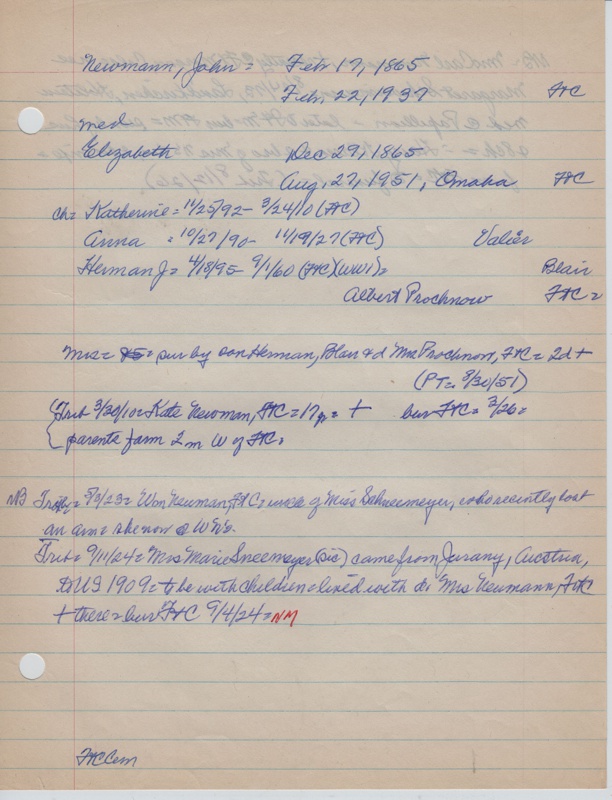 Newmann, John = Feb 17, 1865
Feb. 22, 1937 FtC
med
Elizabeth Dec 29, 1865
Aug. 27, 1951, Omaha FtC
ch= Katherine = 11/25/92 - 3/24/10 (FtC)
Anna = 10/27/90 - 11/19/27 (FtC) Valier
Herman J = 4/18/95 - 9/1/60 (FtC) (WW1) = Blair
Albert Prochnow FtC =
Mrs = 85 = sur by son Herman, Blair & d Mrs Prochnow, FtC = 2d +
(PT = 8/30/51)
Trib 3/30/10 = Kate Newman, FtC = 17 = + bur FtC = 3/26 =
parents farm 2 m W of FtC =
NB = Wm Neuman, FtC = uncle of Miss Schneemeyer, who recently lost
an arm = she now @ WNs.
Trib = 9/11/24 = Mrs Marie Sneemeyer (sic) came from Austria,
to US 1909 = to be with children = lived with d. Mrs Neumann, FtC
+ there = bur FtC 9/4/24 = NM
FtC Cem